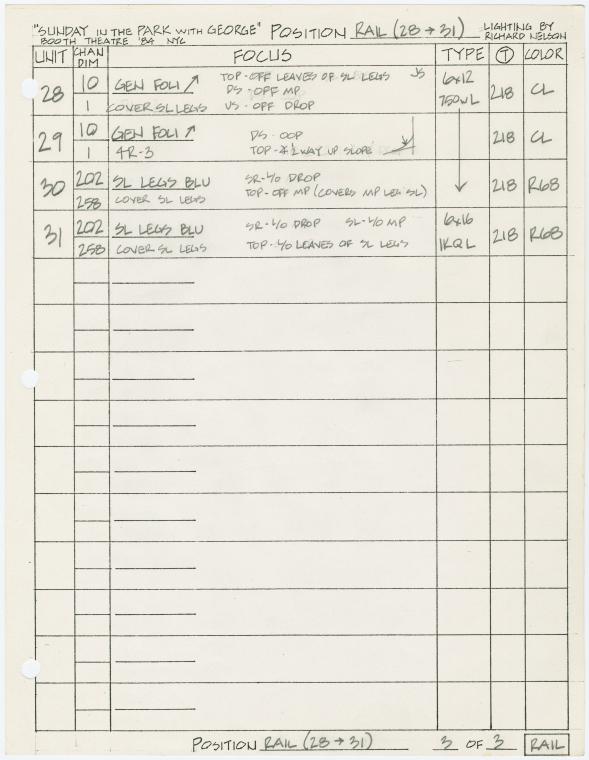 "SUNDAY IN THE PARK WITH GEORGE" POSITION RAIL (28→31) LIGHTING BY
BOOTH THEATRE '84 NYC RICHARD NELSON
UNIT CHAN DIM FOCUS TYPE T COLOR
28 10 GEN FOLI ↗ TOP-OFF LEAVES OF SL LEGS 6x12 218 CL
DS-OFF MP
1 COVER SL LEGS US-OFF DROP 750W L
29 10 GEN FOLI ↗ DS-OOP 218 CL
1 4R-3 TOP-1/2 WAY UP SLOPE
30 202 SL LEGS BLU SR-1/0 DROP 218 R68
258 COVER SL LEGS TOP-OFF MP (COVERS MP LEG SL)
31 202 SL LEGS BLU SR-1/0 DROP SL-1/0 MP 6x16 218 R68
258 COVER SL LEGS TOP-1/0 LEAVES OF SL LEGS 1KQL
POSITION RAIL (28→31) 3 OF 3 RAIL